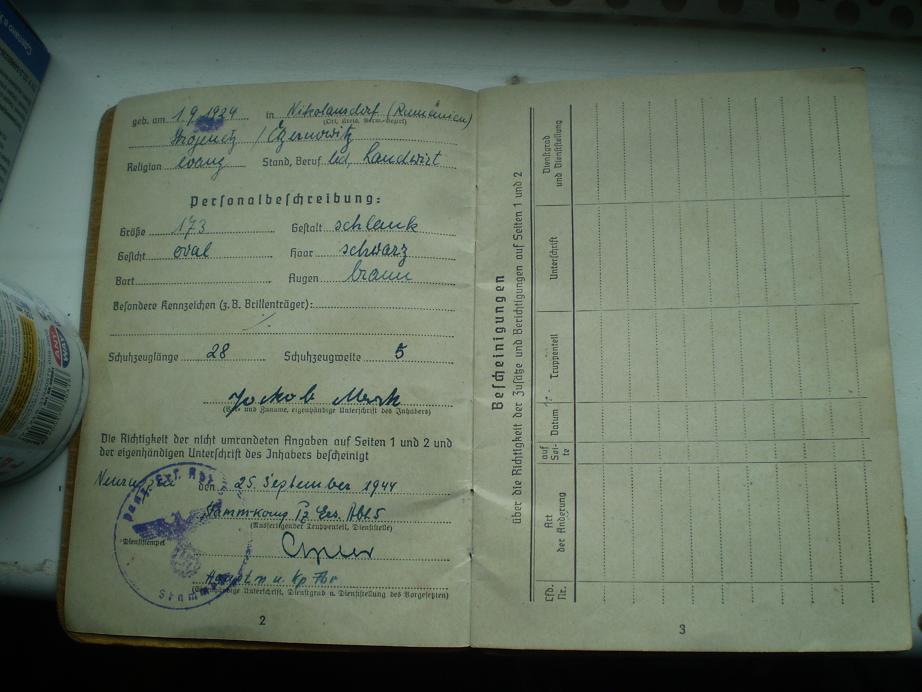 geb. am 1.9.1924 in Nikolausdorf (Rumänien)
(Ort, Kreis, Verw.-Bezirk)
/ Czernowitz
Religion evang Stand, Beruf led, Landwirt
Personalbeschreibung:
Größe 173 Gestalt schlank
Gesicht oval Haar schwarz
Bart Augen braun
Besondere Kennzeichen (z. B. Brillenträger):
Schuhzeuglänge 28 Schuhzeugweite 5
Jakob
(Vor- und Zuname, eigenhändige Unterschrift des Inhabers)
Die Richtigkeit der nicht umrandeten Angaben auf Seiten 1 und 2 und
der eigenhändigen Unterschrift des Inhabers bescheinigt
den 25. September 1944
Stammkomp Pz. Ers. Abt. 5
(Ausfertigender Truppenteil, Dienststelle)
Dienststempel
Hauptm u. Kp
(Eigenhändige Unterschrift, Dienstgrad u. Dienststellung des Vorgesetzten)
Panz. Ers. Abt.
2
Bescheinigungen
über die Richtigkeit der Zusätze und Berichtigungen auf Seiten 1 und 2
Lfd. Nr.
Art der Änderung
auf Sei-te
Datum
Truppenteil
Unterschrift
Dienstgrad und Dienststellung
3